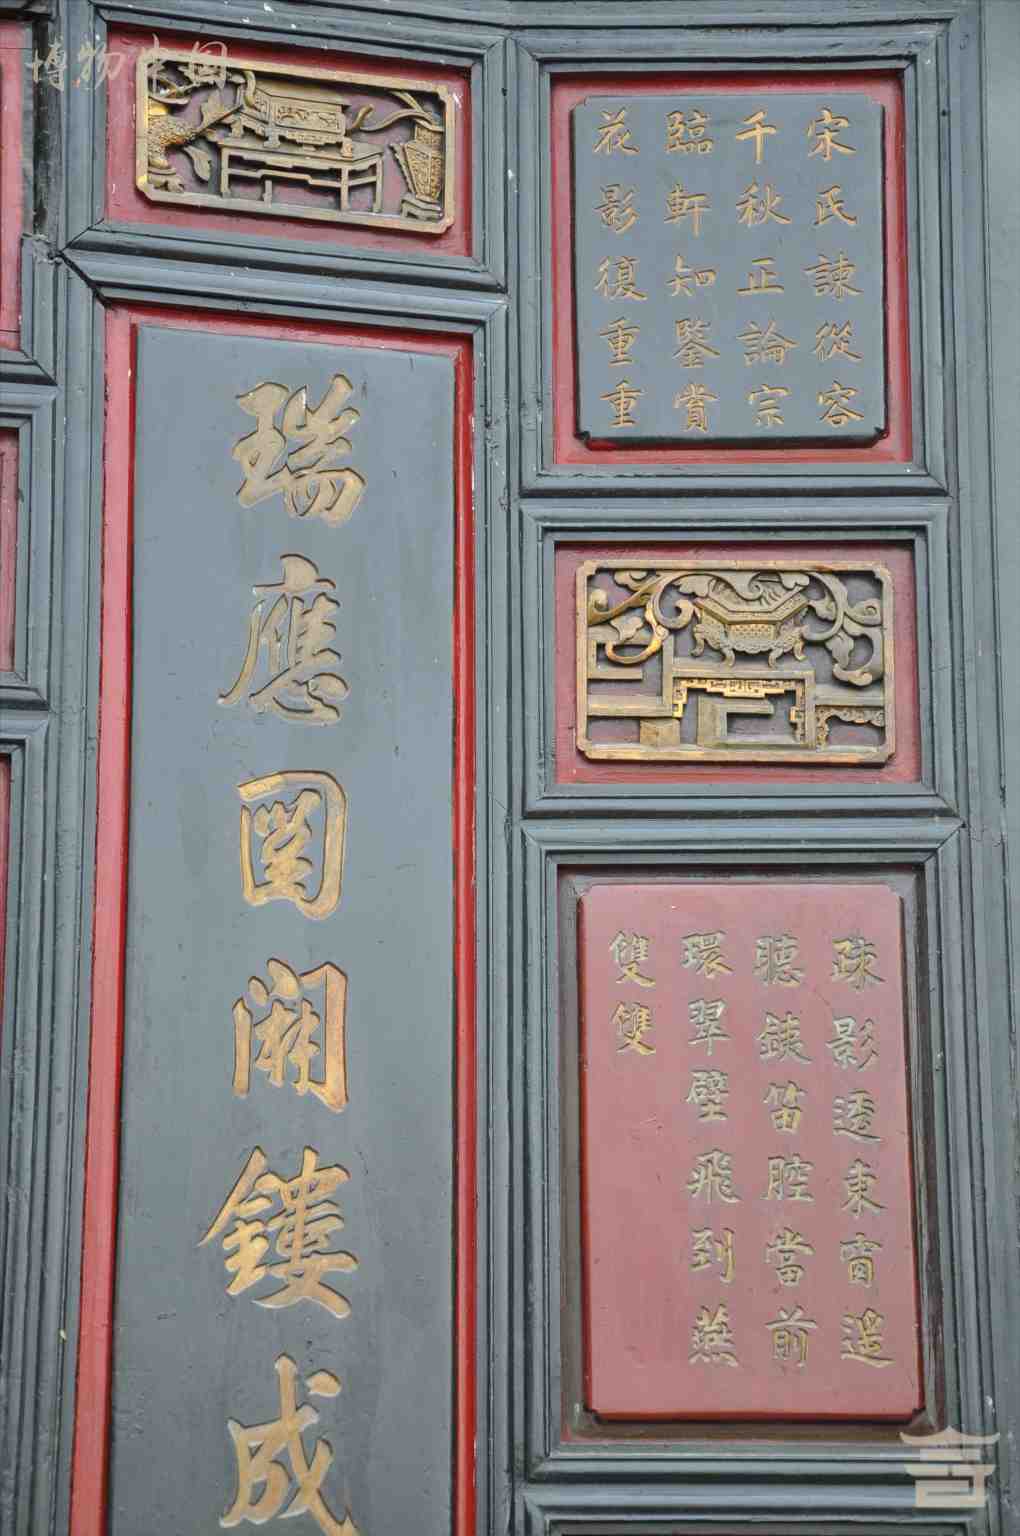 博物中国
宋氏諫從容
千秋正論宗
臨軒知鑒賞
花影復重重
疎影透東窗遥
聴鉄笛腔當前
環翠壁飛到燕
雙雙
瑞應図開鏤成